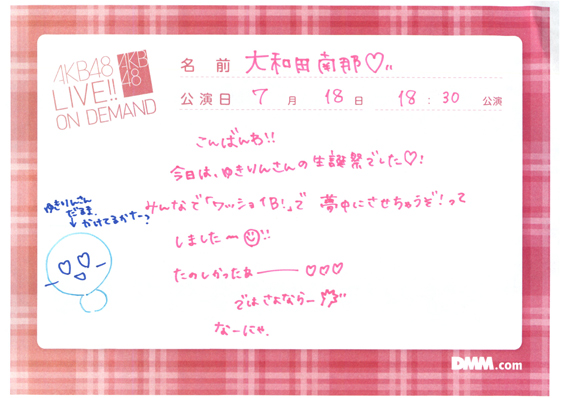 AKB48
LIVE!!
ON DEMAND
AKB
48
名 前 大和田南那♡"
公演日 7 月 18 日 18 : 30 公演
こんばんわ!!
今日は、ゆきりんさんの生誕祭でした♡!
みんなで「ワッショイB!」で 夢中にさせちゃうぞ!って
しました〜☺!!
たのしかったねー ♡♡♡
ではさよならー
なーにゃ.
ゆきりんさん
だるま
↓かけてるかなーっ
DMM.com